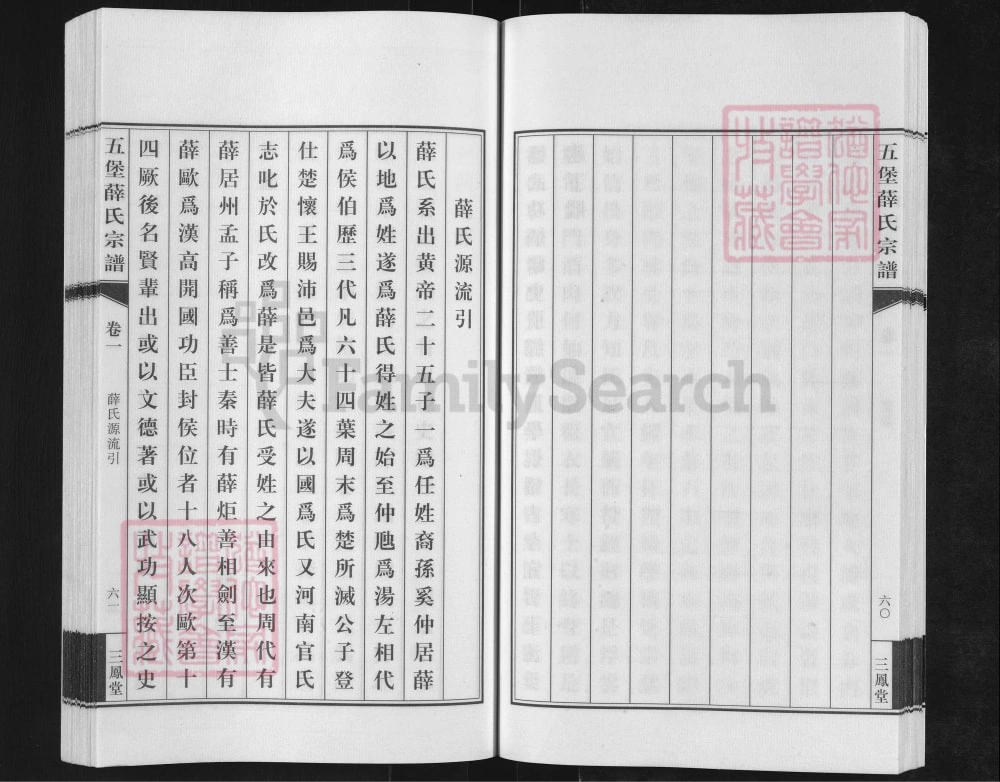 五堡薛氏宗譜
六〇
三鳳堂
薛氏源流引
薛氏系出黃帝二十五子一爲任姓裔孫奚仲居薛
以地爲姓遂爲薛氏得姓之始至仲虺爲湯左相代
爲侯伯歷三代凡六十四葉周末爲楚所滅公子登
仕楚懷王賜沛邑爲大夫遂以國爲氏又河南官氏
志叱於氏改爲薛是皆薛氏受姓之由來也周代有
薛居州孟子稱爲善士秦時有薛炬善相劍至漢有
薛歐爲漢高開國功臣封侯位者十八人次歐第十
四厥後名賢輩出或以文德著或以武功顯按之史
五堡薛氏宗譜
卷一
薛氏源流引
六一
三鳳堂
FamilySearch